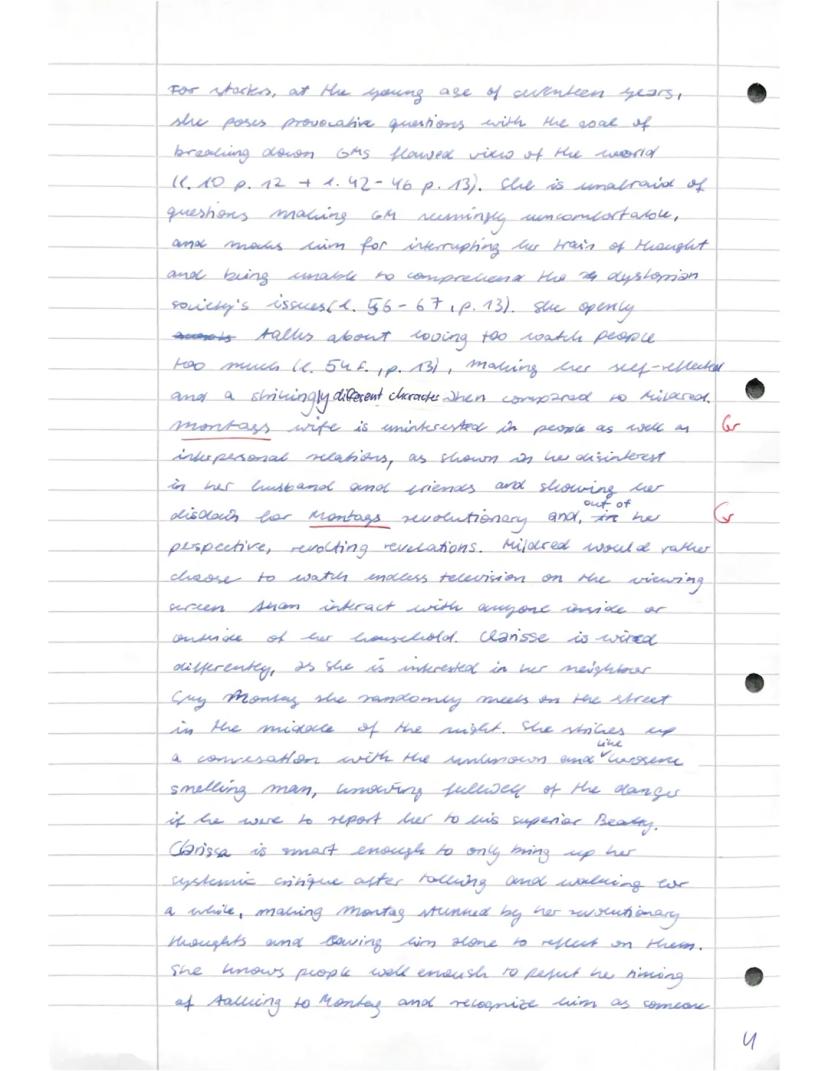 For starters, at the young age of seventeen years,
she poses provocative questions with the goal of
breaking down GMs flawed view of the world
(l. 10 p. 12 + l. 42-46 p. 13). She is unafraid of
questions making GM seemingly uncomfortable,
and mocks him for interrupting her train of thought
and being unable to comprehend the dystopian
society's issues (l. 56-67, p. 13). She openly
talks about loving too watch people
too much (l. 54f., p. 13), making her self-reflected
and a strikingly different character when compared to Mildred.
Montags wife is uninterested in people as well as Gr
interpersonal relations, as shown in her disinterest
in her husband and friends and showing her
disdain for Montags revolutionary and, out of her Gr
perspective, revolting revelations. Mildred would rather
choose to watch endless television on the viewing
screen than interact with anyone inside or
outside of her household. Clarisse is wired
differently, as she is interested in her neighbour
Guy Montag she randomly meets on the street
in the middle of the night. She strikes up
a conversation with the unknown and like kerosene
smelling man, knowing fullwell of the danger
if he were to report her to his superior Beatty.
Clarissa is smart enough to only bring up her
systemic critique after talking and walking for
a while, making Montag stunned by her revolutionary
thoughts and leaving him alone to reflect on them.
She knows people well enough to perfect her timing
of talking to Montag and recognize him as someone
4